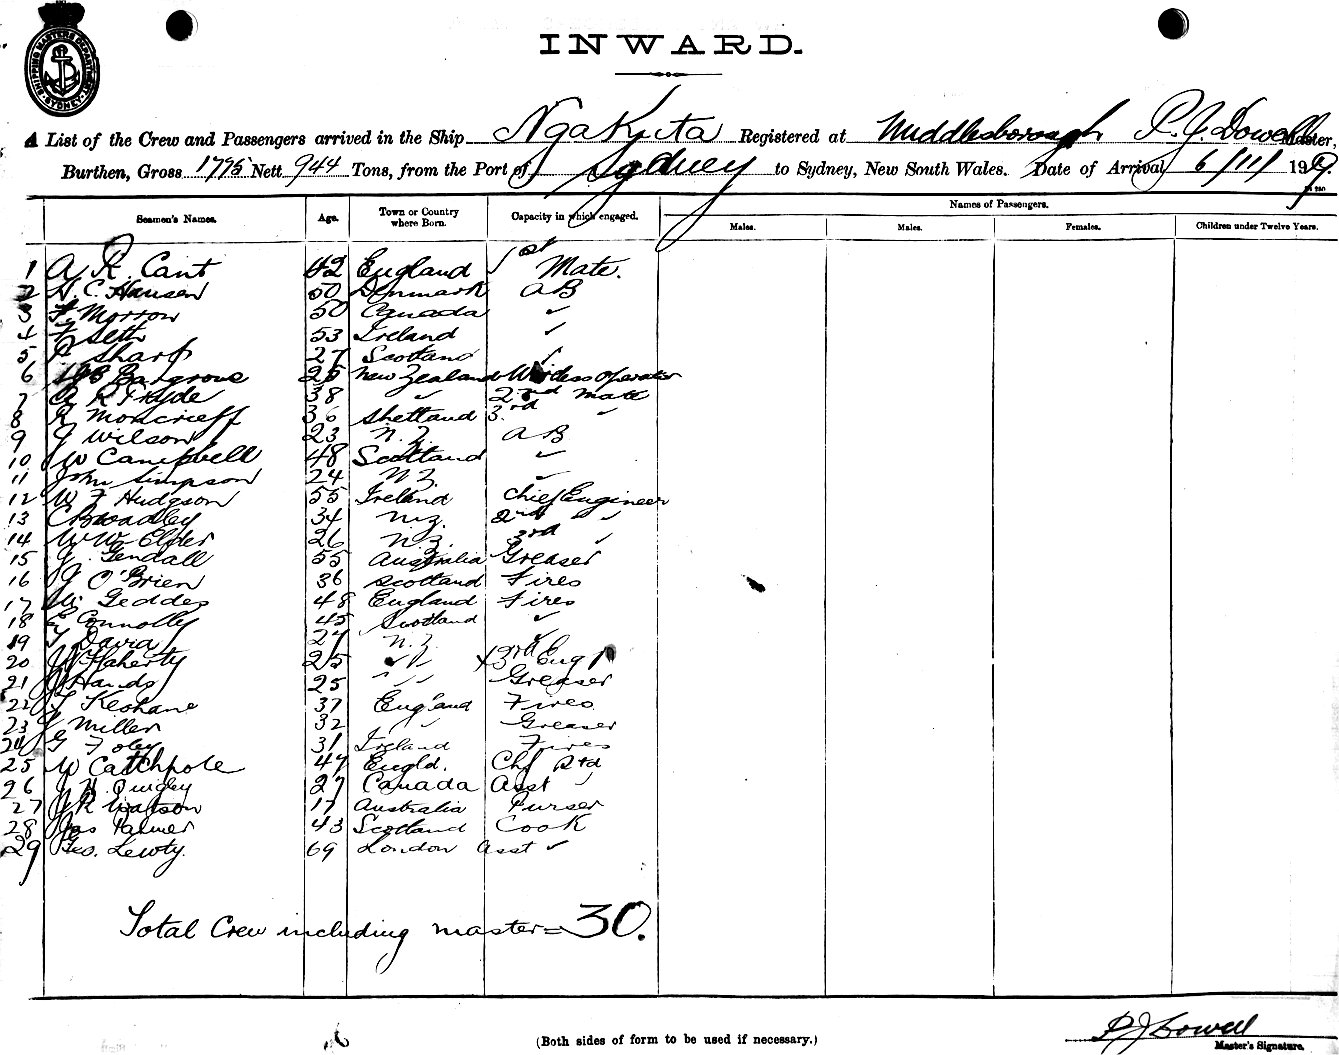 SHIPPING MASTERS DEPARTMENT SYDNEY
INWARD.
A List of the Crew and Passengers arrived in the Ship Ngakuta Registered at Middlesborough P. J. Dowell Master,
Burthen, Gross 1775 Nett 944 Tons, from the Port of Sydney to Sydney, New South Wales. Date of Arrival 6/11/19
Seamen's Names. Age. Town or Country where Born. Capacity in which engaged. Names of Passengers.
Males. Males. Females. Children under Twelve Years.
1 A R. Cant 42 England 1st Mate.
2 H. C. Hansen 50 Denmark AB
3 F. Morrow 50 Canada ✓
4 F Seth 53 Ireland ✓
5 P Sharp 27 Scotland ✓
6 Bargrove 25 New Zealand Wireless Operator
7 A R Fryde 38 " 2nd Mate
8 R Moncrieff 36 Shetland 3rd "
9 J Wilson 23 N.Z. AB
10 W Campbell 48 Scotland ✓
11 John Simpson 24 N.Z. ✓
12 W F Hudgson 55 Ireland Chief Engineer
13 C Broadley 34 N.Z. 2nd "
14 W W Elder 26 N.Z. 3rd ✓
15 J. Gendall 55 Australia Greaser
16 J O'Brien 36 Scotland Fires
17 W. Geddes 48 England Fires
18 E Connolly 45 Scotland ✓
19 T David 27 N.Z. ✓
20 J Flaherty 25 " " 3rd Eng
21 J Hands 25 " " Greaser
22 T Keohane 37 England Fires
23 J Miller 32 " Greaser
24 G Foley 31 Ireland Fires
25 W Catchpole 47 Engld. Chf Std
26 J H Quigley 27 Canada Asst ✓
27 J R Watson 17 Australia Purser
28 Jas Palmer 43 Scotland Cook
29 Geo. Lewty. 69 London Asst ✓
Total Crew including master = 30.
P J Dowell
(Both sides of form to be used if necessary.)
Master's Signature.